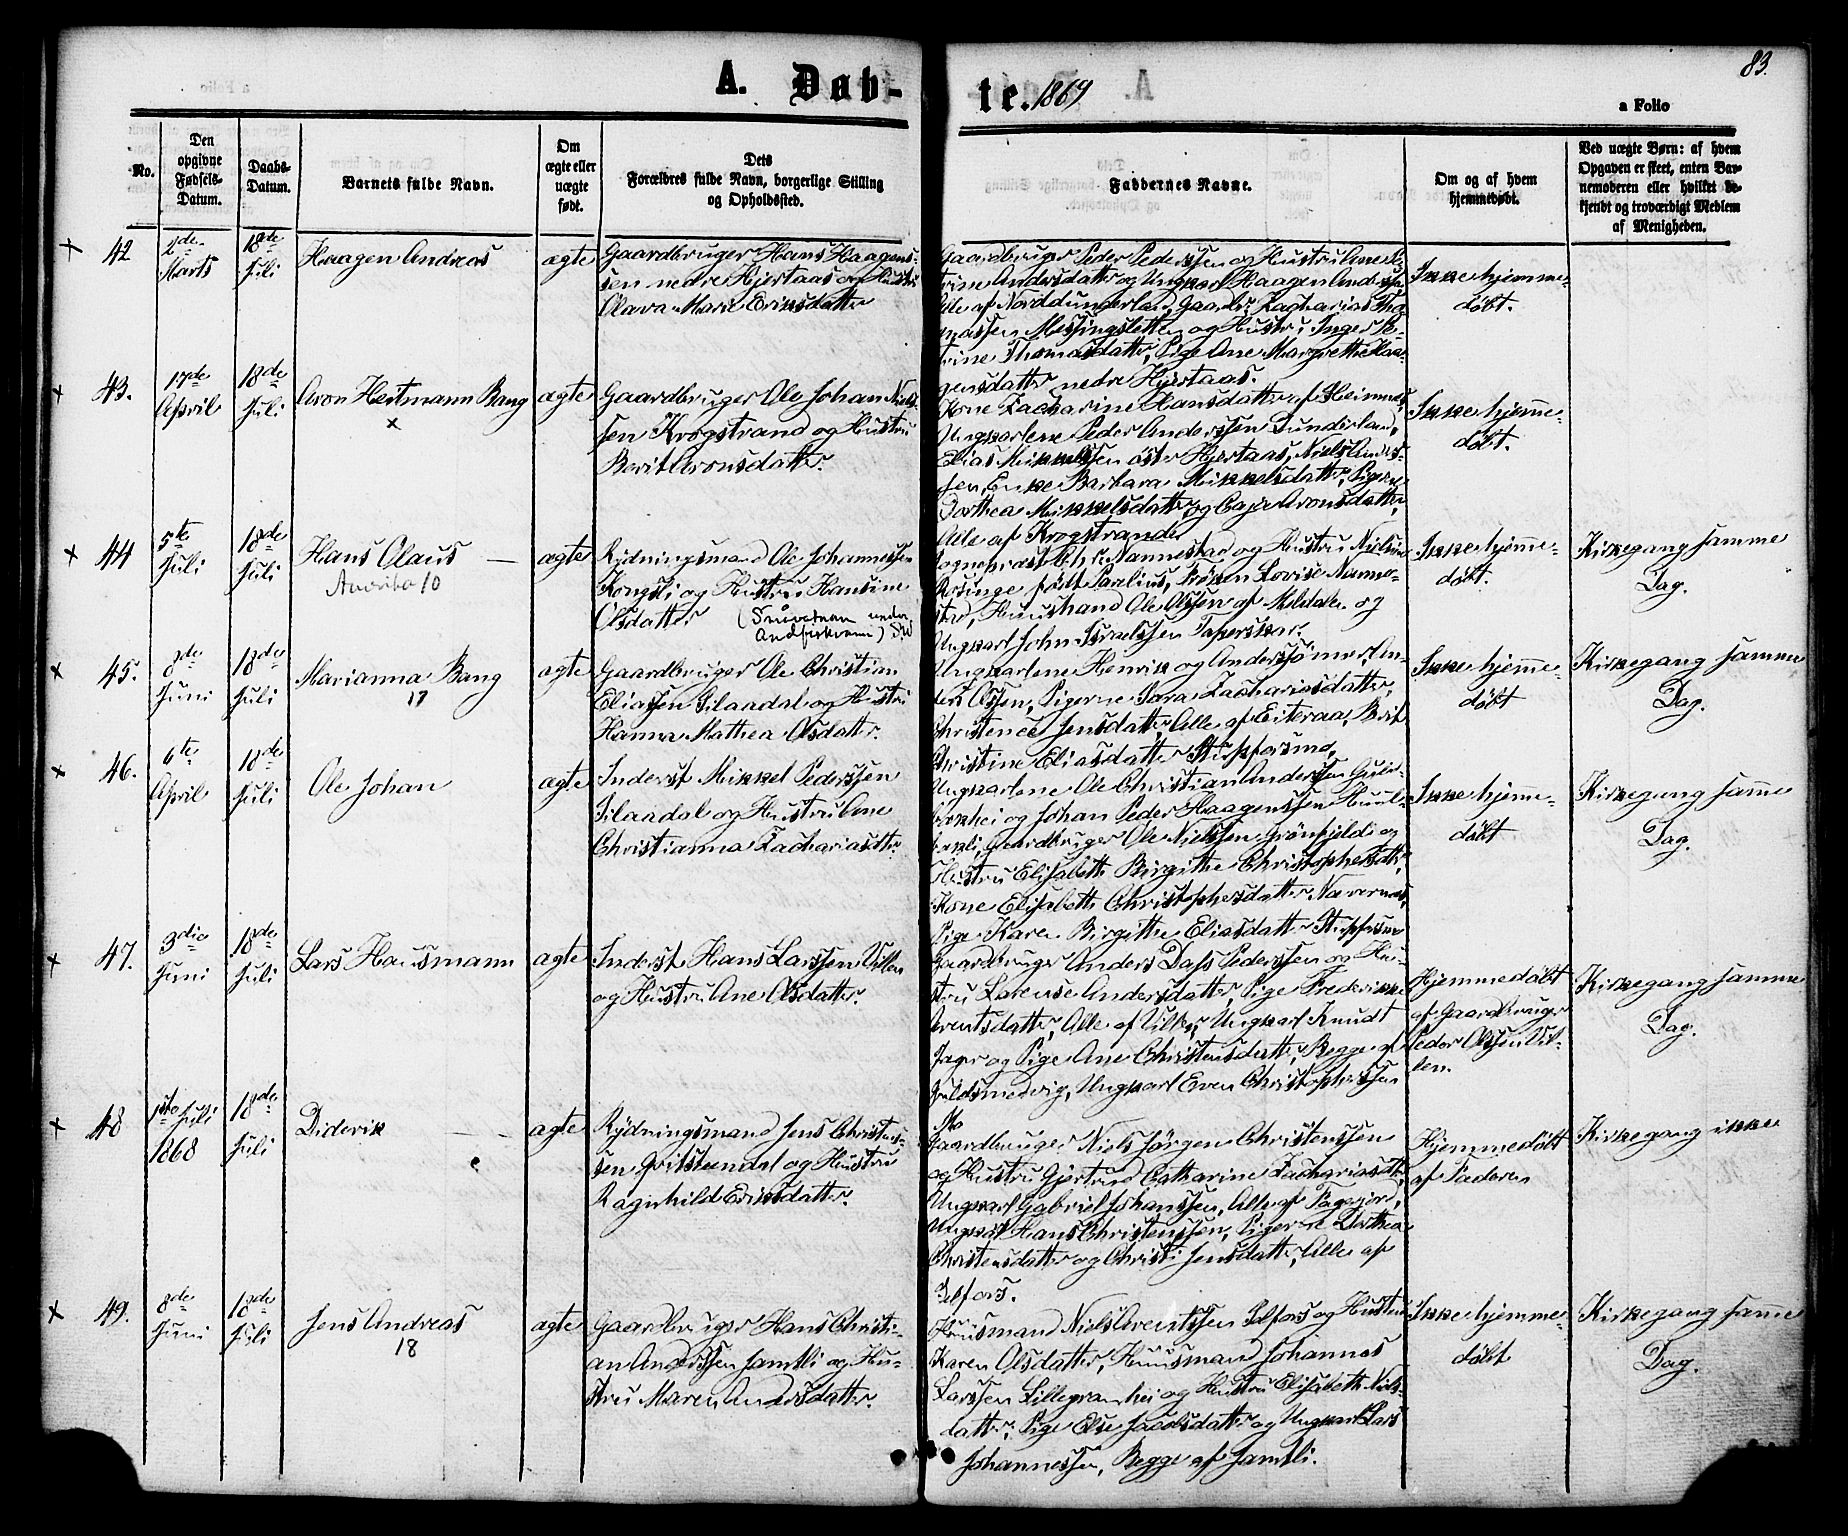 83.
A. Døb-
te. 1869
a Folio
No.
Den opgivne Fødsels-Datum.
Daabs-Datum.
Barnets fulde Navn.
Om ægte eller uægte født.
Dets Forældres fulde Navn, borgerlige Stilling og Opholdssted.
Faddernes Navne.
Om og af hvem hjemmedøbt.
Ved uægte Børn: af hvem Opgaven er skeet, enten Barnemoderen eller hvilket bekjendt og troværdigt Medlem af Menigheden.
42
Marts
18de Juli
Haagen Andreas
ægte
Gaardbruger Hans Haagens-
sen nedre Hjertaas og Hustru
Olava Marie Eriksdatter
Gaardbruger Peder Pederssen og Hustru Ane
trine Andersdatter og Ungkarl Haagen Anderssen
Alle af Norddunderland, Gaardbr. Zacharias Tho
massen Messingsletten og Hustru Inger Pe-
trine Thomasdatter, Pige Ane Margrethe Haa-
gensdatter nedre Hjertaas.
Ikke hjemme-
døbt.
43.
17de April
18de Juli
Aron Heitmann Bang
ægte
Gaardbruger Ole Johan Niels-
sen Krogstrand og Hustru
Berit Aronsdatter.
Kone Zacharine Hansdatter af Heimnes,
Ungkarlene Peder Anderssen Dunderland,
Elias Mikkelssen øster Hjertaas, Niels Anders-
sen, Enke Barbara Mikkelsdatter, Pigerne
Dorthea Mikkelsdatter og Caja Aronsdatter,
Alle af Krogstrand
Ikke hjemme-
døbt.
44
5te Juli
18de Juli
Hans Olaus
10
ægte
Rydningsmand Ole Johannessen
Kongsli og Hustru Hansine
Olsdatter
Sognepræst Chr. Nannestad og Hustru
født Parelius, Frøken Lovise Nanne-
stad, Huusmand Ole Olssen af og
Ungkarl John Israelssen
Ikke hjemme-
døbt.
Kirkegang samme
Dag.
45.
8de Juni
18de Juli
Marianna Bang
17
ægte
Gaardbruger Ole Christian
Eliassen Silaadal og Hustru
Hanna Mathea Olsdatter.
Ungkarlene Henrik og Anderssønner, An-
ders Olssen, Pigerne Sara Zachariasdatter,
Jensdatter, Alle af Eiteraa, Berit
Christine Eliasdatter Stupforsmo.
Ikke hjemme-
døbt
Kirkegang samme
Dag.
46.
6te April
18de Juli
Ole Johan
ægte
Inderst Mikkel Pederssen
Silaadal og Hustru Ane
Christianna Zachariasdtr.
Ungkarlene Ole Christian Anderssen
og Johan Peder Haagenssen
Gaardbruger Ole Nielssen Grønfjeld og
Hustru Elisabeth Birgithe Christophersdtr.
Kone Elisabeth Christophersdatter Nævernes,
Pige Karen Birgithe Eliasdatter Stupforsmo
Ikke hjemme-
døbt
Kirkegang samme
Dag.
47.
3die Juni
18de Juli
Lars Hausmann
ægte
Inderst Hans Larssen Villen
og Hustru Ane Olsdatter.
Gaardbruger Anders Dass Pederssen og Hu-
stru Larense Andersdatter, Pige Frederikke
Arentsdatter, Alle af Villen, Ungkarl Knudt
Jager og Pige Ane Christensdatter, Begge af
Guldsmedvig, Ungkarl Even Christopherssen
Mo
Hjemmedøbt
af Gaardbruger
Peder Olssen Vil-
len.
Kirkegang samme
Dag.
48
1ste Juli 1868
18de Juli
Diderik
ægte
Rydningsmand Jens Christens-
sen og Hustru
Ragnhild Eriksdatter.
Gaardbruger Niels Jørgen Christenssen
og Hustru Gjertrud Catharine Zachariasdtr.
Ungkarl Gabriel Johanssen, Alle af
Ungkarl Hans Christenssen, Pigerne Dorthea
Christensdatter og Jensdatter, Alle af
Ilfors.
Hjemmedøbt
af Faderen
Kirkegang ikke
49.
8de Juni
18de Juli
Jens Andreas
18
ægte
Gaardbruger Hans Christi-
an Anderssen Jamtli og Hu-
stru Maren Andersdatter.
Huusmand Niels Arentssen Ilfors og Hustru
Karen Olsdatter, Huusmand Johannes
Larssen Lillegranhei og Hustru Elisabeth Niels-
datter, Pige Else Jacobsdatter og Ungkarl Lars
Johannessen, Begge af Jamtli.
Ikke hjemme-
døbt
Kirkegang samme
Dag.